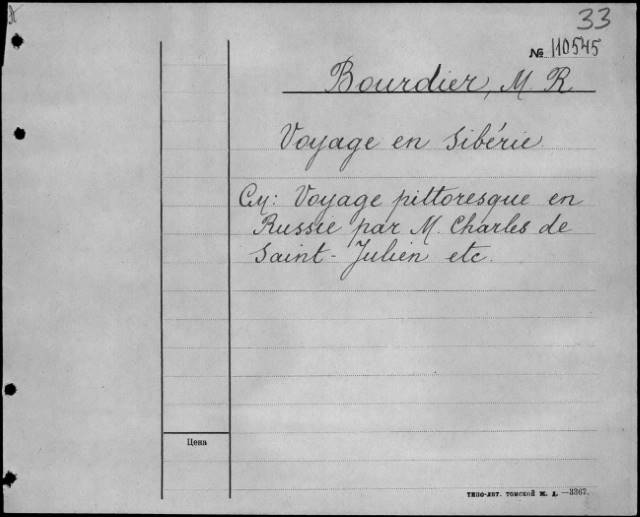 33
№ 110545
Bourdier, M R
Voyage en Sibérie
См: Voyage pittoresque en
Russie par M. Charles de
Saint-Julien etc.
Цена
ТИПО-ЛИТ. ТОМСКОЙ Ж. Д. —3367.